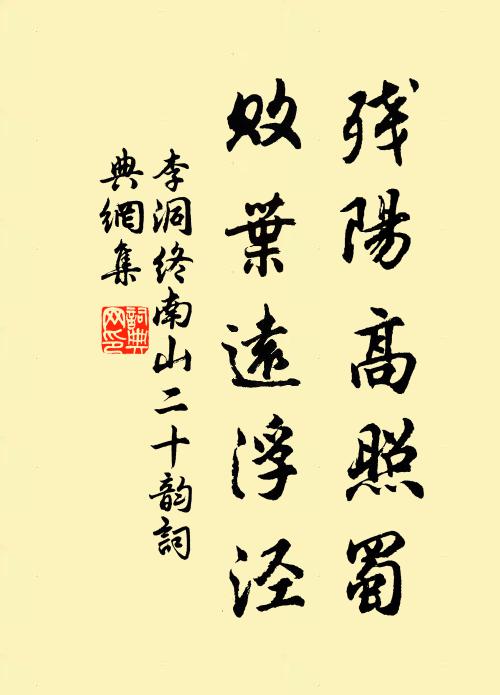 残陽高照蜀
敗葉遠浮泾
李洞終南山二十韵詞
典網集
詞典网印